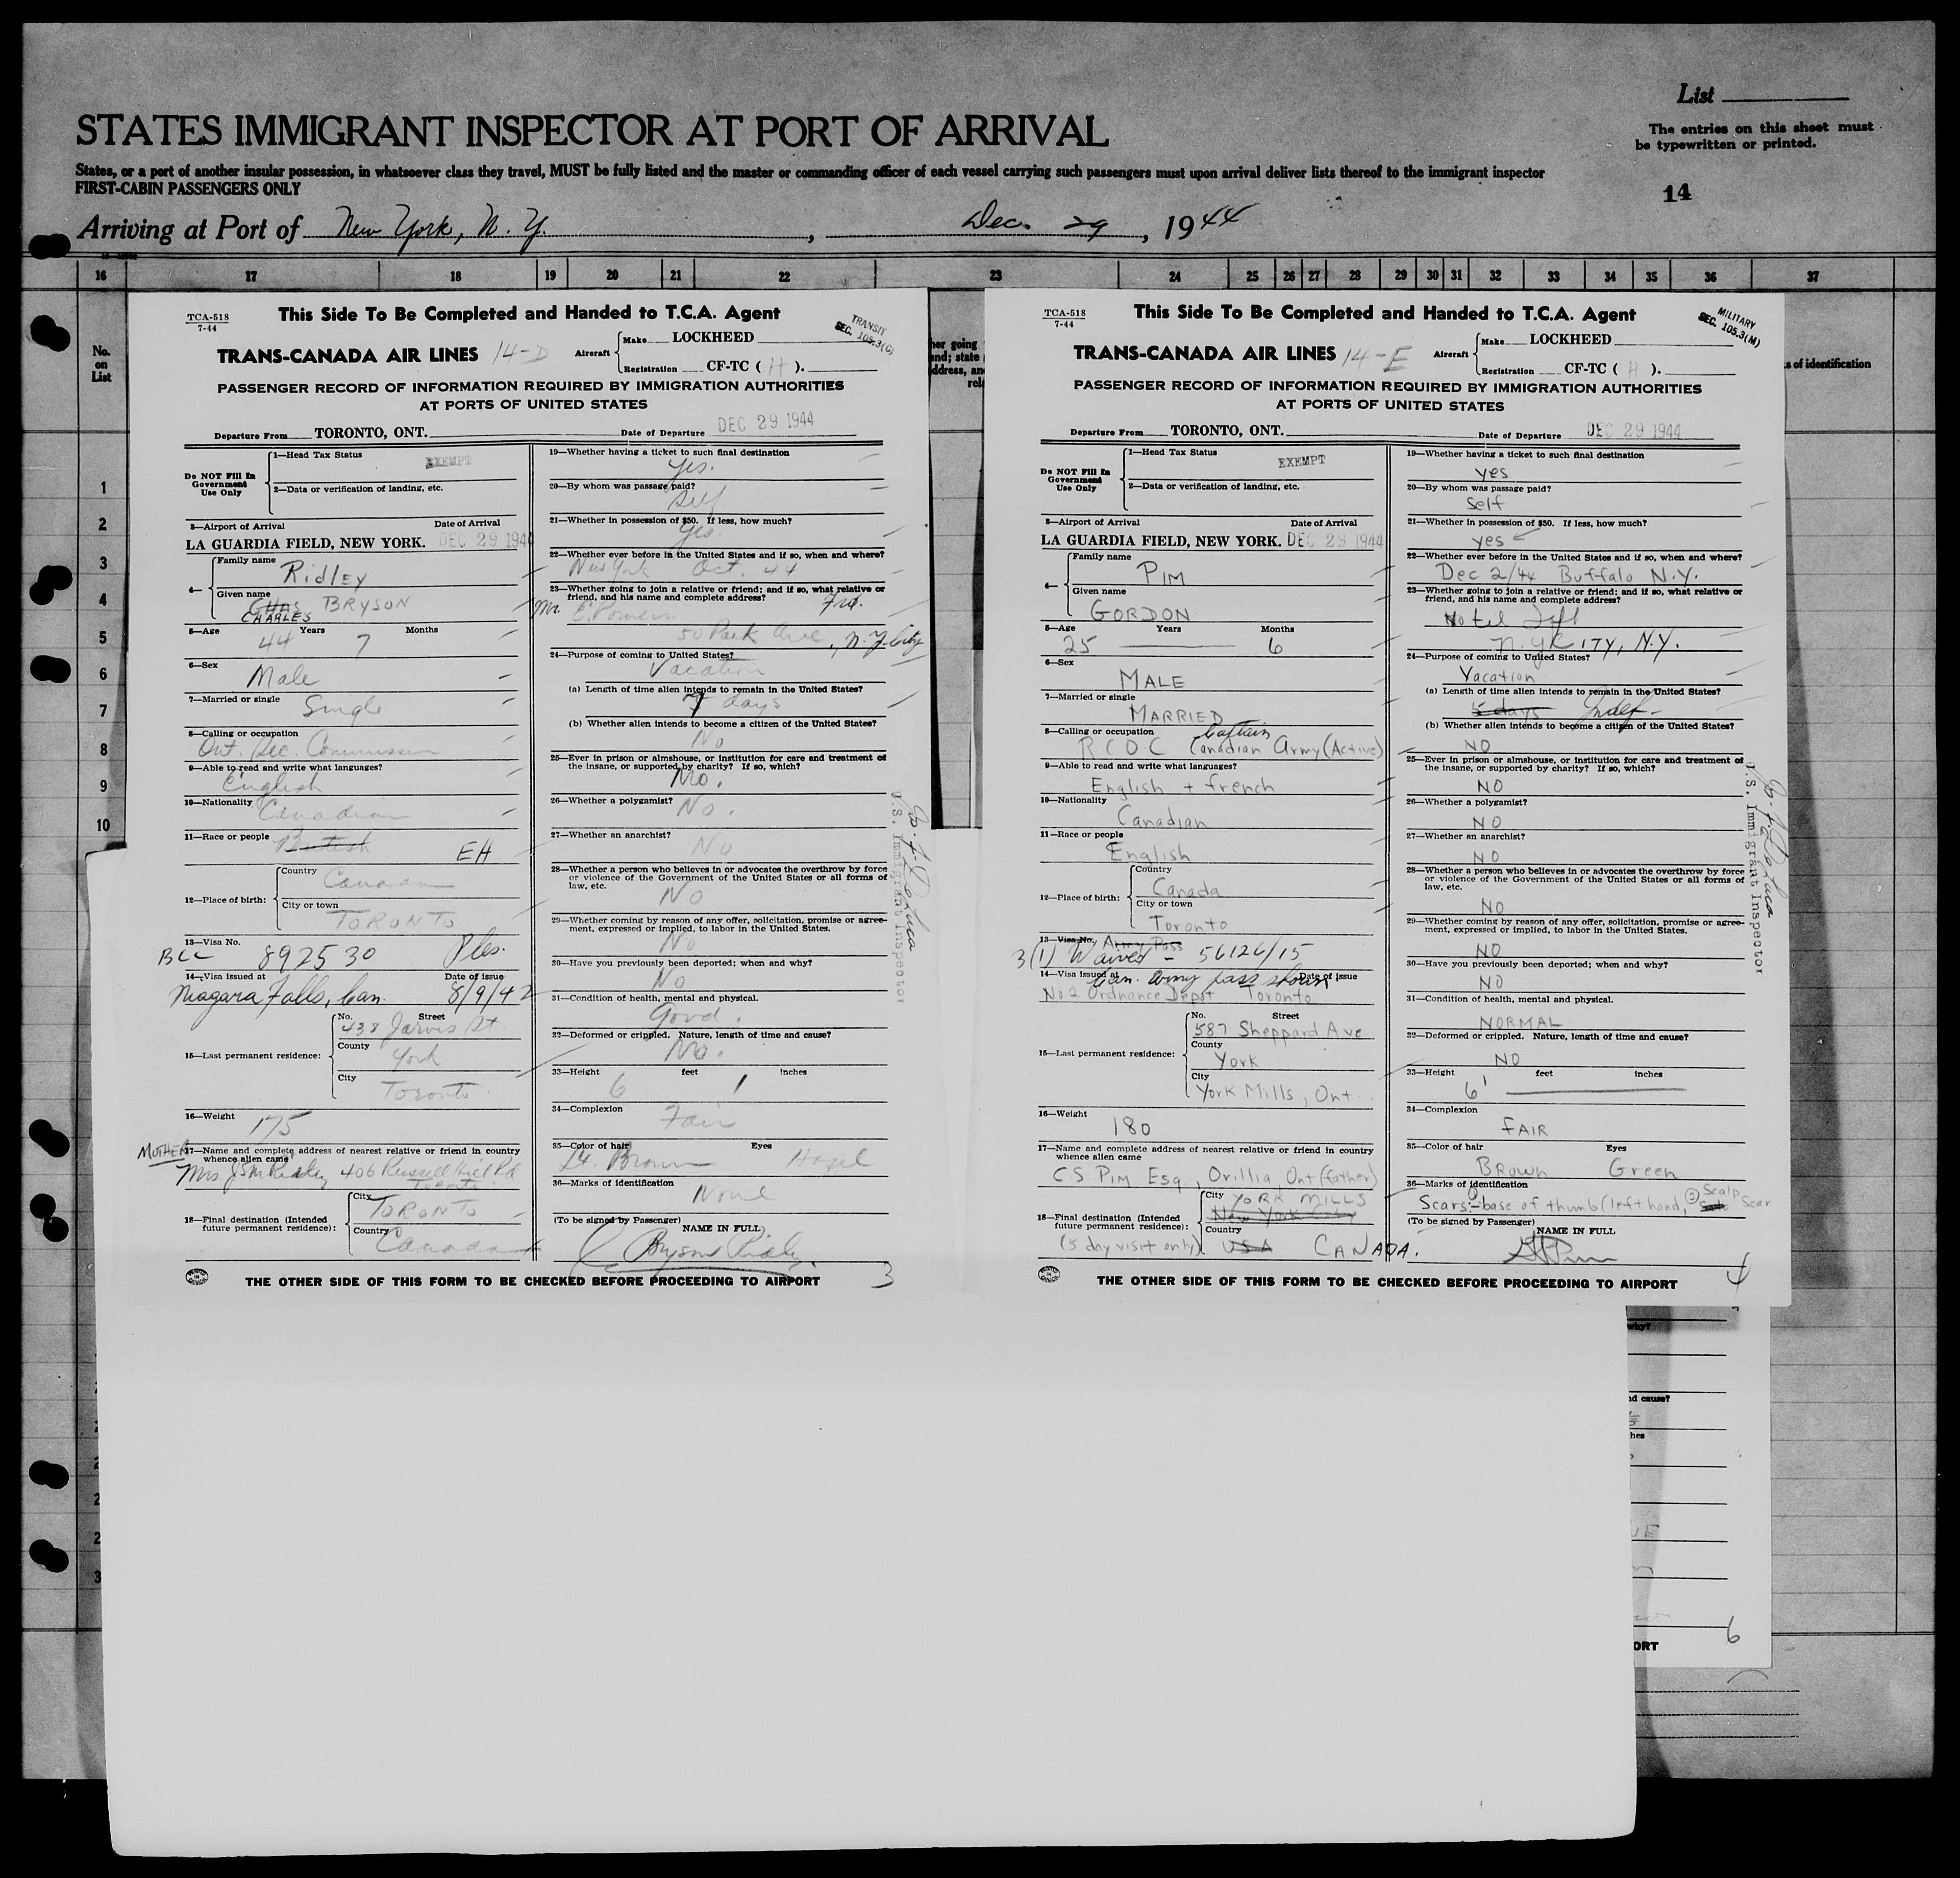 List
STATES IMMIGRANT INSPECTOR AT PORT OF ARRIVAL
The entries on this sheet must
be typewritten or printed.
States, or a port of another insular possession, in whatsoever class they travel, MUST be fully listed and the master or commanding officer of each vessel carrying such passengers must upon arrival deliver lists thereof to the immigrant inspector
FIRST-CABIN PASSENGERS ONLY
14
Arriving at Port of New York, N. Y., Dec. 29, 1944
16 17 18 19 20 21 22 23 24 25 26 27 28 29 30 31 32 33 34 35 36 37
No.
on
List
1
2
3
4
5
6
7
8
9
10
TCA-518
7-44
This Side To Be Completed and Handed to T.C.A. Agent
TRANSIT
SEC. 105.3(C)
TRANS-CANADA AIR LINES 14-D
Aircraft
Make LOCKHEED
Registration CF-TC ( H ).
PASSENGER RECORD OF INFORMATION REQUIRED BY IMMIGRATION AUTHORITIES
AT PORTS OF UNITED STATES
Departure From TORONTO, ONT. Date of Departure DEC 29 1944
Do NOT Fill In
Government
Use Only
1—Head Tax Status
EXEMPT
2—Data or verification of landing, etc.
3—Airport of Arrival Date of Arrival
LA GUARDIA FIELD, NEW YORK. DEC 29 1944
4—
Family name
Ridley
Given name
CHAS BRYSON
CHARLES
5—Age Years Months
44 7
6—Sex
Male
7—Married or single
Single
8—Calling or occupation
Ont. Sec. Commission
9—Able to read and write what languages?
English
10—Nationality
Canadian
11—Race or people
British EH
12—Place of birth:
Country
Canada
City or town
TORONTO
13—Visa No.
BCC 892530
14—Visa issued at Date of issue
Niagara Falls, Can. 8/9/42
15—Last permanent residence:
No. Street
438 Jarvis St.
County
York
City
Toronto
16—Weight
175
MOTHER
17—Name and complete address of nearest relative or friend in country
whence alien came
Mrs. Ridley 406 Russell Hill Rd
Toronto
18—Final destination (Intended
future permanent residence):
City
TORONTO
Country
Canada
19—Whether having a ticket to such final destination
Yes.
20—By whom was passage paid?
Self
21—Whether in possession of $50. If less, how much?
Yes
22—Whether ever before in the United States and if so, when and where?
New York Oct. 44
23—Whether going to join a relative or friend; and if so, what relative or
friend, and his name and complete address?
Frd.
Mr. E. Powers
50 Park Ave, N.Y. City
24—Purpose of coming to United States?
Vacation
(a) Length of time alien intends to remain in the United States?
7 days
(b) Whether alien intends to become a citizen of the United States?
No
25—Ever in prison or almshouse, or institution for care and treatment of
the insane, or supported by charity? If so, which?
No.
26—Whether a polygamist?
No.
27—Whether an anarchist?
No
28—Whether a person who believes in or advocates the overthrow by force
or violence of the Government of the United States or all forms of
law, etc.
No
29—Whether coming by reason of any offer, solicitation, promise or agree-
ment, expressed or implied, to labor in the United States.
No
30—Have you previously been deported; when and why?
No
31—Condition of health, mental and physical.
Good.
32—Deformed or crippled. Nature, length of time and cause?
No.
33—Height feet inches
6 1
34—Complexion
Fair
35—Color of hair Eyes
Lt. Brown Hazel
36—Marks of identification
None
(To be signed by Passenger)
NAME IN FULL
C Bryson Ridley
U.S. Immigrant Inspector
THE OTHER SIDE OF THIS FORM TO BE CHECKED BEFORE PROCEEDING TO AIRPORT
3
her going
end; state
ddress, an
rel
TCA-518
7-44
This Side To Be Completed and Handed to T.C.A. Agent
MILITARY
SEC. 105.3(M)
TRANS-CANADA AIR LINES 14-E
Aircraft
Make LOCKHEED
Registration CF-TC ( H ).
PASSENGER RECORD OF INFORMATION REQUIRED BY IMMIGRATION AUTHORITIES
AT PORTS OF UNITED STATES
Departure From TORONTO, ONT. Date of Departure DEC 29 1944
Do NOT Fill In
Government
Use Only
1—Head Tax Status
EXEMPT
2—Data or verification of landing, etc.
3—Airport of Arrival Date of Arrival
LA GUARDIA FIELD, NEW YORK. DEC 29 1944
4—
Family name
PIM
Given name
GORDON
5—Age Years Months
25 6
6—Sex
MALE
7—Married or single
MARRIED
8—Calling or occupation
Captain
RCOC Canadian Army (Active)
9—Able to read and write what languages?
English + french
10—Nationality
Canadian
11—Race or people
English
12—Place of birth:
Country
Canada
City or town
Toronto
13—Visa No. Army Pass
3(1) Waived - 56126/15
14—Visa issued at Date of issue
Can. Army pass shown
No 2 Ordnance Depot Toronto
15—Last permanent residence:
No. Street
587 Sheppard Ave
County
York
City
York Mills, Ont.
16—Weight
180
17—Name and complete address of nearest relative or friend in country
whence alien came
C S PIM Esq., Orillia, Ont (father)
18—Final destination (Intended
future permanent residence):
(5 day visit only)
City
YORK MILLS
New York City
Country
USA CANADA.
19—Whether having a ticket to such final destination
yes
20—By whom was passage paid?
Self
21—Whether in possession of $50. If less, how much?
yes
22—Whether ever before in the United States and if so, when and where?
Dec 2/44 Buffalo N.Y.
23—Whether going to join a relative or friend; and if so, what relative or
friend, and his name and complete address?
Hotel Taft
N.Y. CITY, N.Y.
24—Purpose of coming to United States?
Vacation
(a) Length of time alien intends to remain in the United States?
5 days Indef.
(b) Whether alien intends to become a citizen of the United States?
NO
25—Ever in prison or almshouse, or institution for care and treatment of
the insane, or supported by charity? If so, which?
NO
26—Whether a polygamist?
NO
27—Whether an anarchist?
NO
28—Whether a person who believes in or advocates the overthrow by force
or violence of the Government of the United States or all forms of
law, etc.
NO
29—Whether coming by reason of any offer, solicitation, promise or agree-
ment, expressed or implied, to labor in the United States.
NO
30—Have you previously been deported; when and why?
NO
31—Condition of health, mental and physical.
NORMAL
32—Deformed or crippled. Nature, length of time and cause?
NO
33—Height feet inches
6'
34—Complexion
FAIR
35—Color of hair Eyes
Brown Green
36—Marks of identification
Scars:- base of thumb (left hand, Scalp Scar
(To be signed by Passenger)
NAME IN FULL
U.S. Immigrant Inspector
THE OTHER SIDE OF THIS FORM TO BE CHECKED BEFORE PROCEEDING TO AIRPORT
4
s of identification
why?
nd cause?
hes
6
ORT